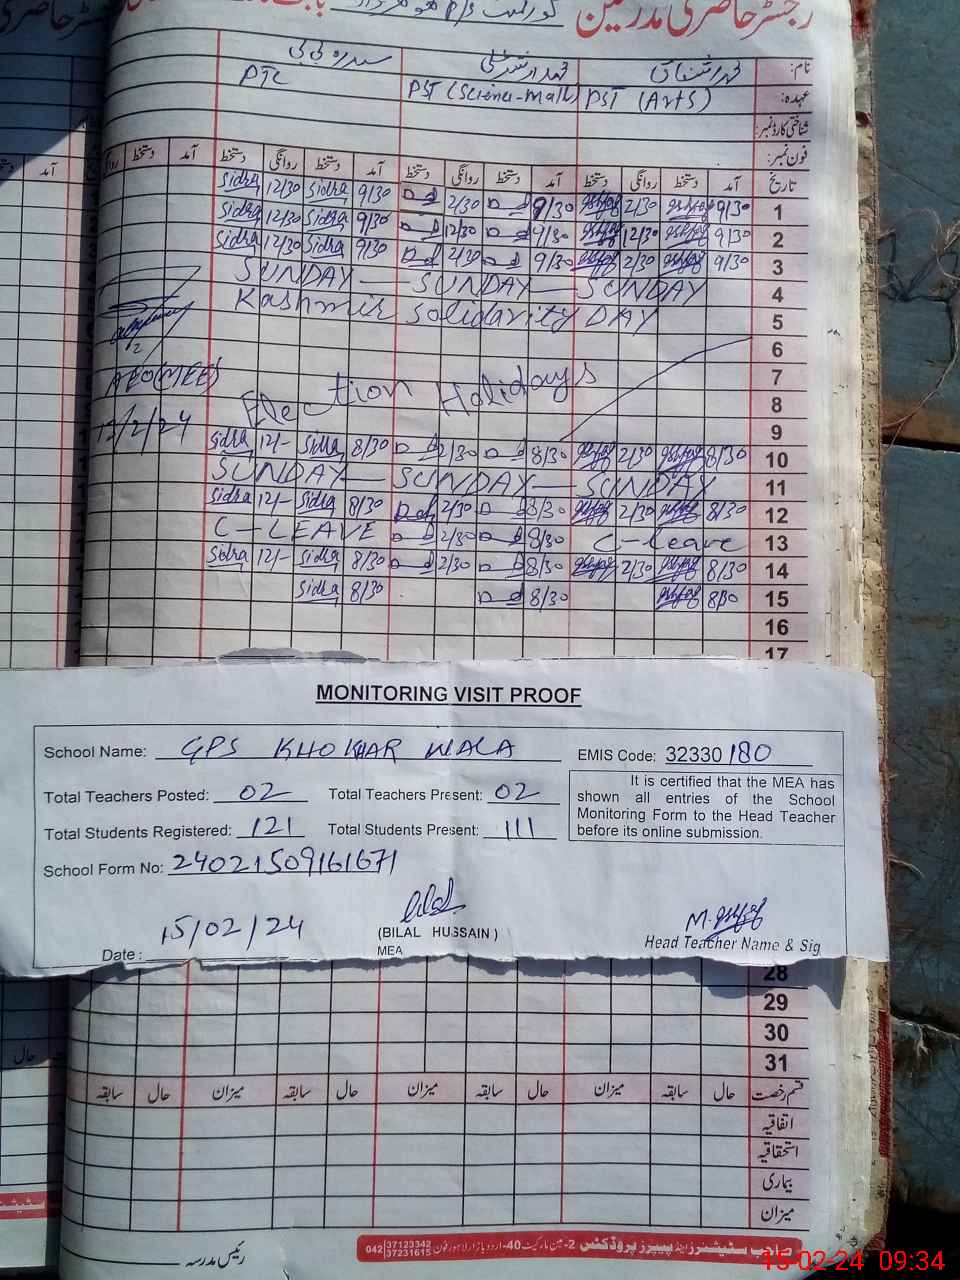 رجسٹر حاضری مدرسین گورنمنٹ P/S
نام: محمد اشفاق محمد ارشد علی سدرہ بی بی
عہدہ: PST (Arts) PST (Science-Math) PTC
شناختی کارڈ نمبر:
فون نمبر:
تاریخ آمد دستخط روانگی دستخط آمد دستخط روانگی دستخط آمد دستخط روانگی دستخط آمد دستخط
1 9/30 2/30 9/30 2/30 9/30 Sidra 12/30 Sidra
2 9/30 12/30 9/30 12/30 9/30 Sidra 12/30 Sidra
3 9/30 2/30 9/30 2/30 9/30 Sidra 12/30 Sidra
4 SUNDAY — SUNDAY — SUNDAY
5 Kashmir Solidarity DAY
6
7 AEO (MEE)
8 Election Holidays
9 12/2/24
10 8/30 2/30 8/30 2/30 8/30 Sidra 12/- Sidra
11 SUNDAY — SUNDAY — SUNDAY
12 8/30 2/30 8/30 2/30 8/30 Sidra 12/- Sidra
13 C-Leave 8/30 2/30 C-LEAVE
14 8/30 2/30 8/30 2/30 8/30 Sidra 12/- Sidra
15 8/30 8/30 8/30 Sidra
16
17
MONITORING VISIT PROOF
School Name: GPS KHOKHAR WALA EMIS Code: 32330180
Total Teachers Posted: 02 Total Teachers Present: 02
Total Students Registered: 121 Total Students Present: 111
It is certified that the MEA has
shown all entries of the School
Monitoring Form to the Head Teacher
before its online submission.
School Form No: 24021509161671
Date: 15/02/24
(BILAL HUSSAIN)
MEA
Head Teacher Name & Sig
28
29
30
31
قسم رخصت حال سابقہ میزان حال سابقہ میزان حال سابقہ میزان حال سابقہ
اتفاقیہ
استحقاقیہ
بیماری
میزان
رئیس مدرسہ
صاحب سٹیشنرز اینڈ پیپرز پروڈکٹس 2-مین مارکیٹ 40-اردو بازار لاہور فون 042 37123342 37231615
15-02-24 09:34